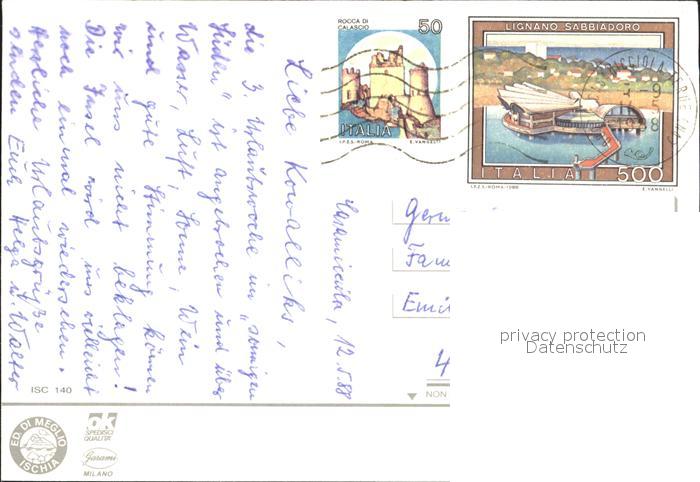 ROCCA DI
CALASCIO
50
ITALIA
I.P.Z.S.-ROMA
E. VANGELLI
LIGNANO SABBIADORO
ITALIA 500
I.P.Z.S.-ROMA-1986
E. VANGELLI
Casamicciola, 12.5.88
Liebe Kowalliks,
die 3. Urlaubswoche im „sonnigen
Süden" ist angebrochen und über
Wasser, Luft, Sonne, Wein
und gute Stimmung können
wir uns nicht beklagen!
Die Insel wird uns vielleicht
noch einmal wiedersehen.
Herzliche Urlaubsgrüße
senden Euch Helga u. Walter
Fam
4
privacy protection
Datenschutz
ISC 140
NON
ED. DI MEGLIO
ISCHIA
ok
SPEDISCI
QUALITÀ
Garami
MILANO